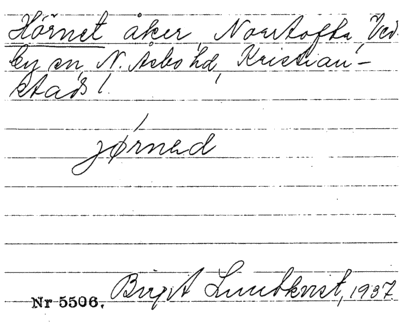 Hörnet åker, Norrtofta, Ved-
by sn, N. Åsbo hd, Kristian-
stads l.
jørned
Nr 5506. Birgit Lundkvist, 1937